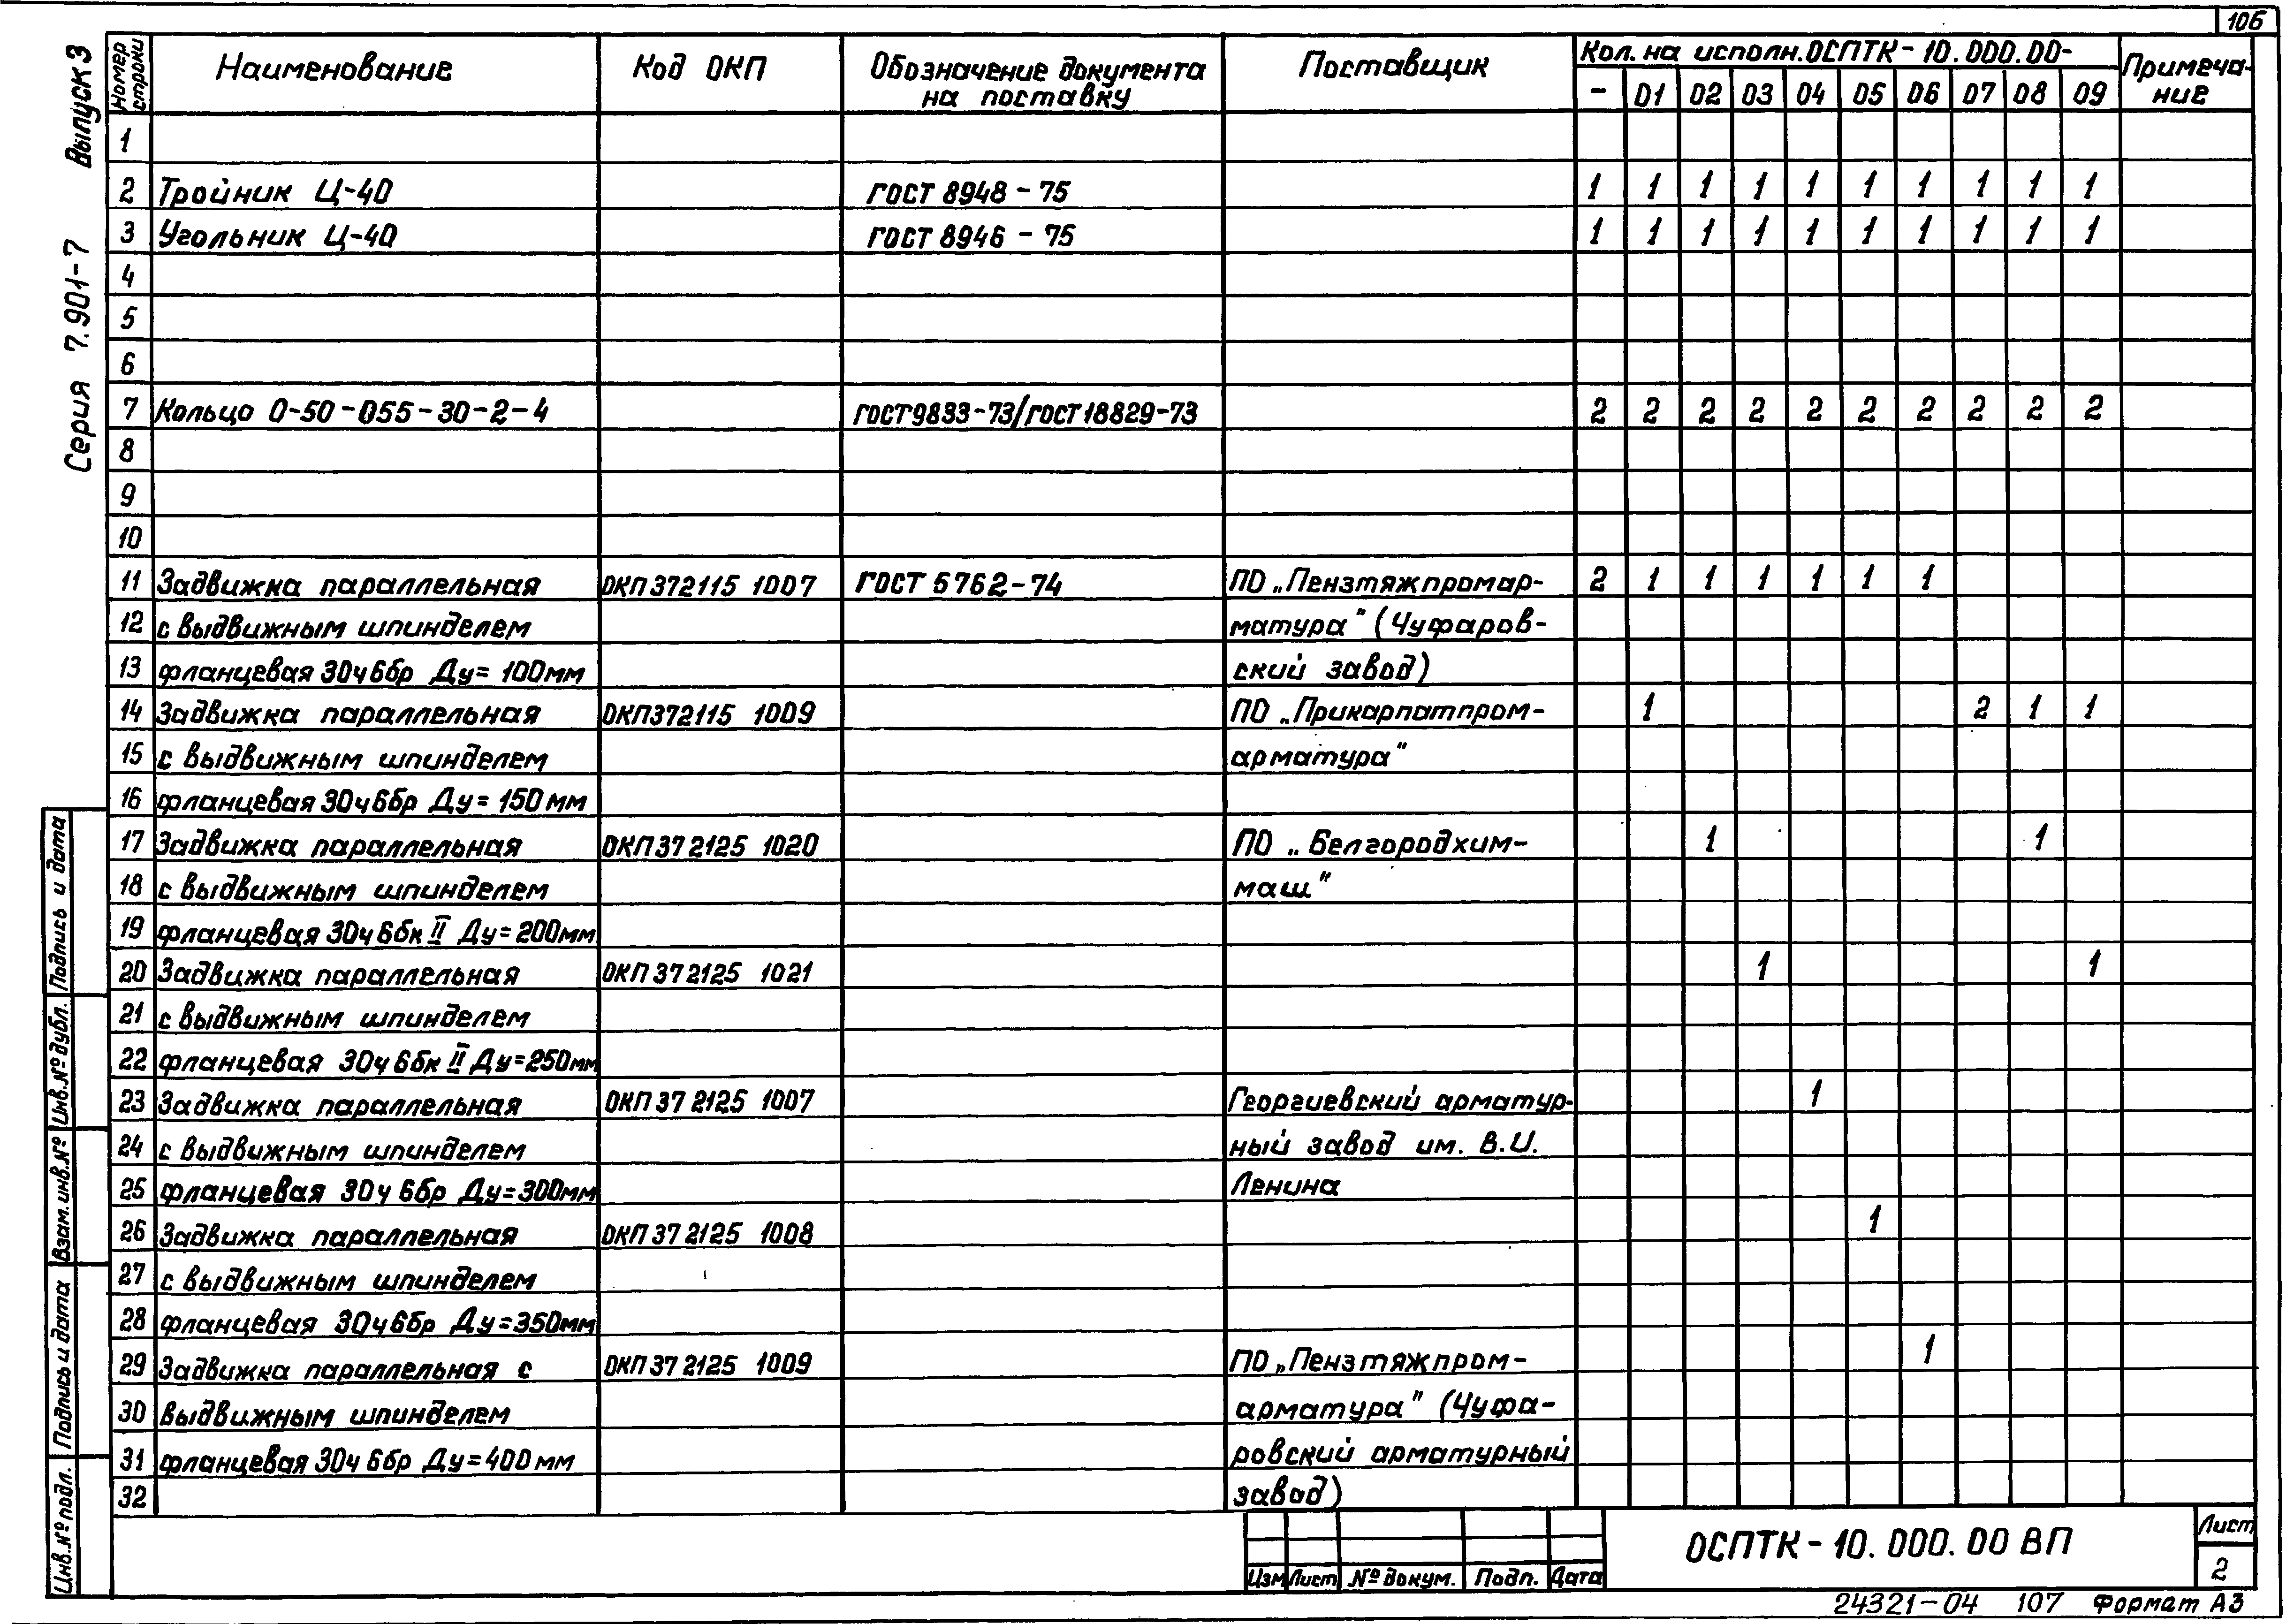 106
Серия 7.901-7 Выпуск 3
Номер строки Наименование Код ОКП Обозначение документа на поставку Поставщик Кол. на исполн. ОСПТК-10.000.00- Примечание
- 01 02 03 04 05 06 07 08 09
1
2 Тройник Ц-40 ГОСТ 8948-75 1 1 1 1 1 1 1 1 1 1
3 Угольник Ц-40 ГОСТ 8946-75 1 1 1 1 1 1 1 1 1 1
4
5
6
7 Кольцо О-50-055-30-2-4 ГОСТ9833-73/ГОСТ18829-73 2 2 2 2 2 2 2 2 2 2
8
9
10
11 Задвижка параллельная ОКП 372115 1007 ГОСТ 5762-74 ПО „Пензтяжпромар- 2 1 1 1 1 1 1
12 с выдвижным шпинделем матура" (Чуфаров-
13 фланцевая 30ч6бр Ду= 100мм ский завод)
14 Задвижка параллельная ОКП372115 1009 ПО „Прикарпатпром- 1 2 1 1
15 с выдвижным шпинделем арматура"
16 фланцевая 30ч6бр Ду= 150мм
17 Задвижка параллельная ОКП 37 2125 1020 ПО „Белгородхим- 1 1
18 с выдвижным шпинделем маш"
19 фланцевая 30ч6бк II Ду=200мм
20 Задвижка параллельная ОКП 37 2125 1021 1 1
21 с выдвижным шпинделем
22 фланцевая 30ч6бк II Ду=250мм
23 Задвижка параллельная ОКП 37 2125 1007 Георгиевский арматур- 1
24 с выдвижным шпинделем ный завод им. В.И.
25 фланцевая 30ч6бр Ду=300мм Ленина
26 Задвижка параллельная ОКП 37 2125 1008 1
27 с выдвижным шпинделем
28 фланцевая 30ч6бр Ду=350мм
29 Задвижка параллельная с ОКП 37 2125 1009 ПО „Пензтяжпром- 1
30 выдвижным шпинделем арматура" (Чуфа-
31 фланцевая 30ч6бр Ду=400мм ровский арматурный
32 завод)
Подпись и дата
Инв.№ дубл.
Взам.инв.№
Подпись и дата
Инв.№ подл.
Изм Лист № докум. Подп. Дата
ОСПТК-10.000.00 ВП
Лист
2
24321-04 107 Формат А3